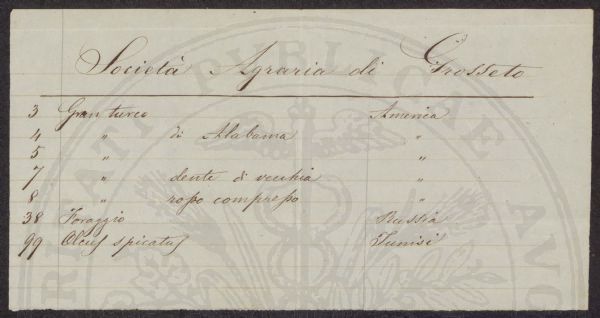 Società Agraria di Grosseto
3 Gran turco America
4 " di Alabama "
5 " "
7 " dente di vecchia "
8 " rosso compresso "
38 Foraggio Russia
99 Olcus spicatus Tunisi